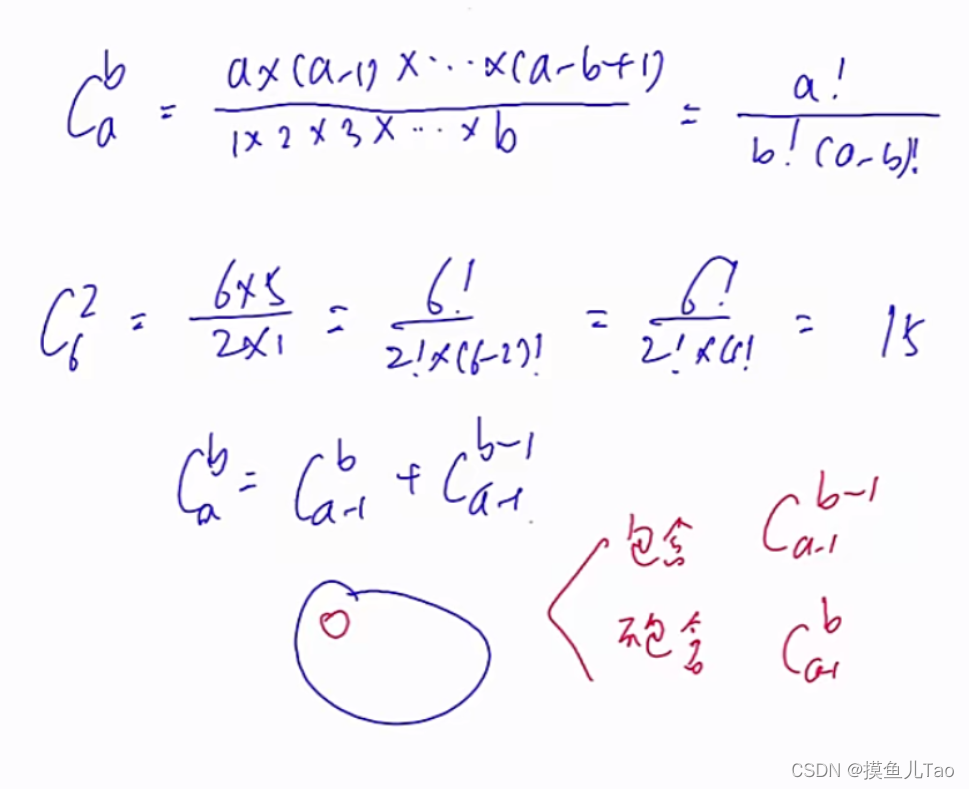 C_a^b = \frac{a×(a-1)×···×(a-b+1)}{1×2×3×···×b} = \frac{a!}{b!(a-b)!}
C_6^2 = \frac{6×5}{2×1} = \frac{6!}{2!×(6-2)!} = \frac{6!}{2!×4!} = 15
C_a^b = C_{a-1}^b + C_{a-1}^{b-1}
包含 C_{a-1}^{b-1}
不包含 C_{a-1}^b
CSDN @摸鱼儿Tao